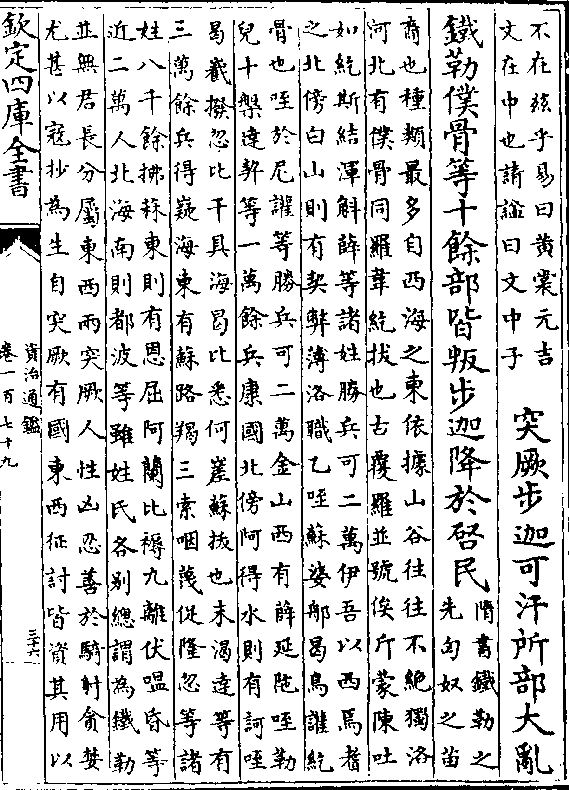 不在兹乎易曰黄裳元吉
文在中也請諡曰文中子
突厥步迦可汗所部大亂
鐵勒僕骨等十餘部皆叛步迦降於啓民
隋書鐵勒之
先匈奴之苗
裔也種類最多自西海之東依據山谷往往不絶獨洛
河北有僕骨同羅韋紇拔也古覆羅並號俟斤蒙陳吐
如紇斯結渾斛薛等諸姓勝兵可二萬伊吾以西焉耆
之北傍白山則有契弊薄洛職乙咥蘇婆那曷烏讙紇
骨也咥於尼讙等勝兵可二萬金山西有薛延陀咥勒
兒十槃達契等一萬餘兵康國北傍阿得水則有訶咥
曷嶻撥忽比干具海曷比悉何嵳蘇拔也末渴達等有
三萬餘兵得嶷海東有蘇路羯三索咽蔑促隆忽等諸
姓八千餘拂菻東則有恩屈阿蘭比褥九離伏嗢昏等
近二萬人北海南則都波等雖姓氏各别總謂為鐵勒
並無君長分屬東西兩突厥人性凶忍善於騎射貪婪
尤甚以寇抄為生自突厥有國東西征討皆資其用以
欽定四庫全書
資治通鑑
卷一百七十九
三十六